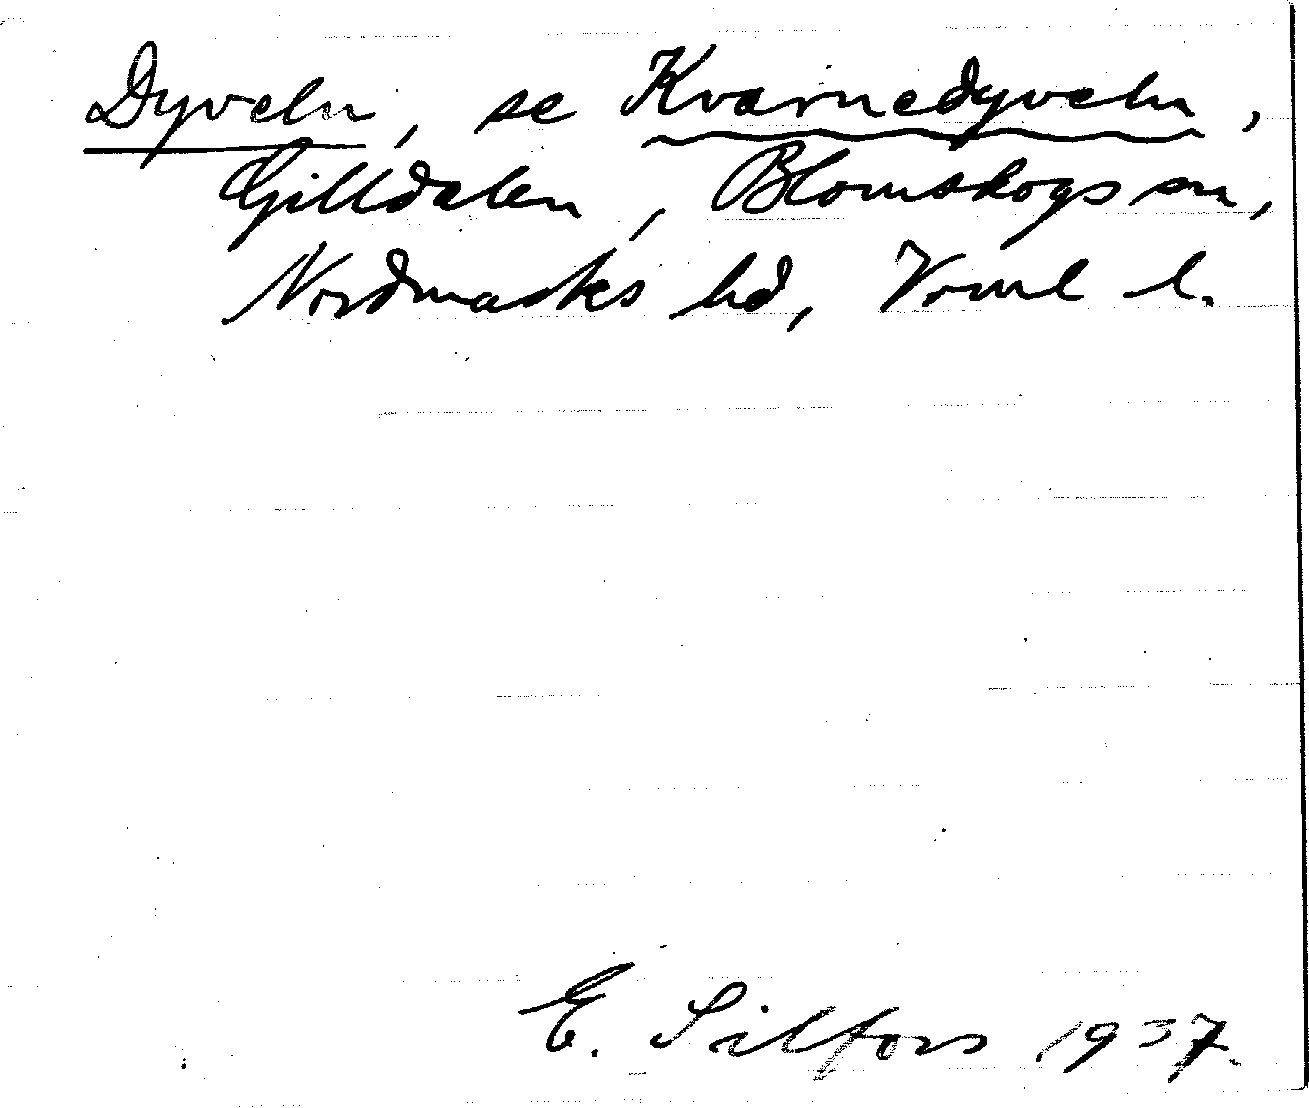 Dyveln, se Kvarnedyveln,
Gilldalen, Blomskogs sn,
Nordmarks hd, Verml l.
E. Silfors 1937.